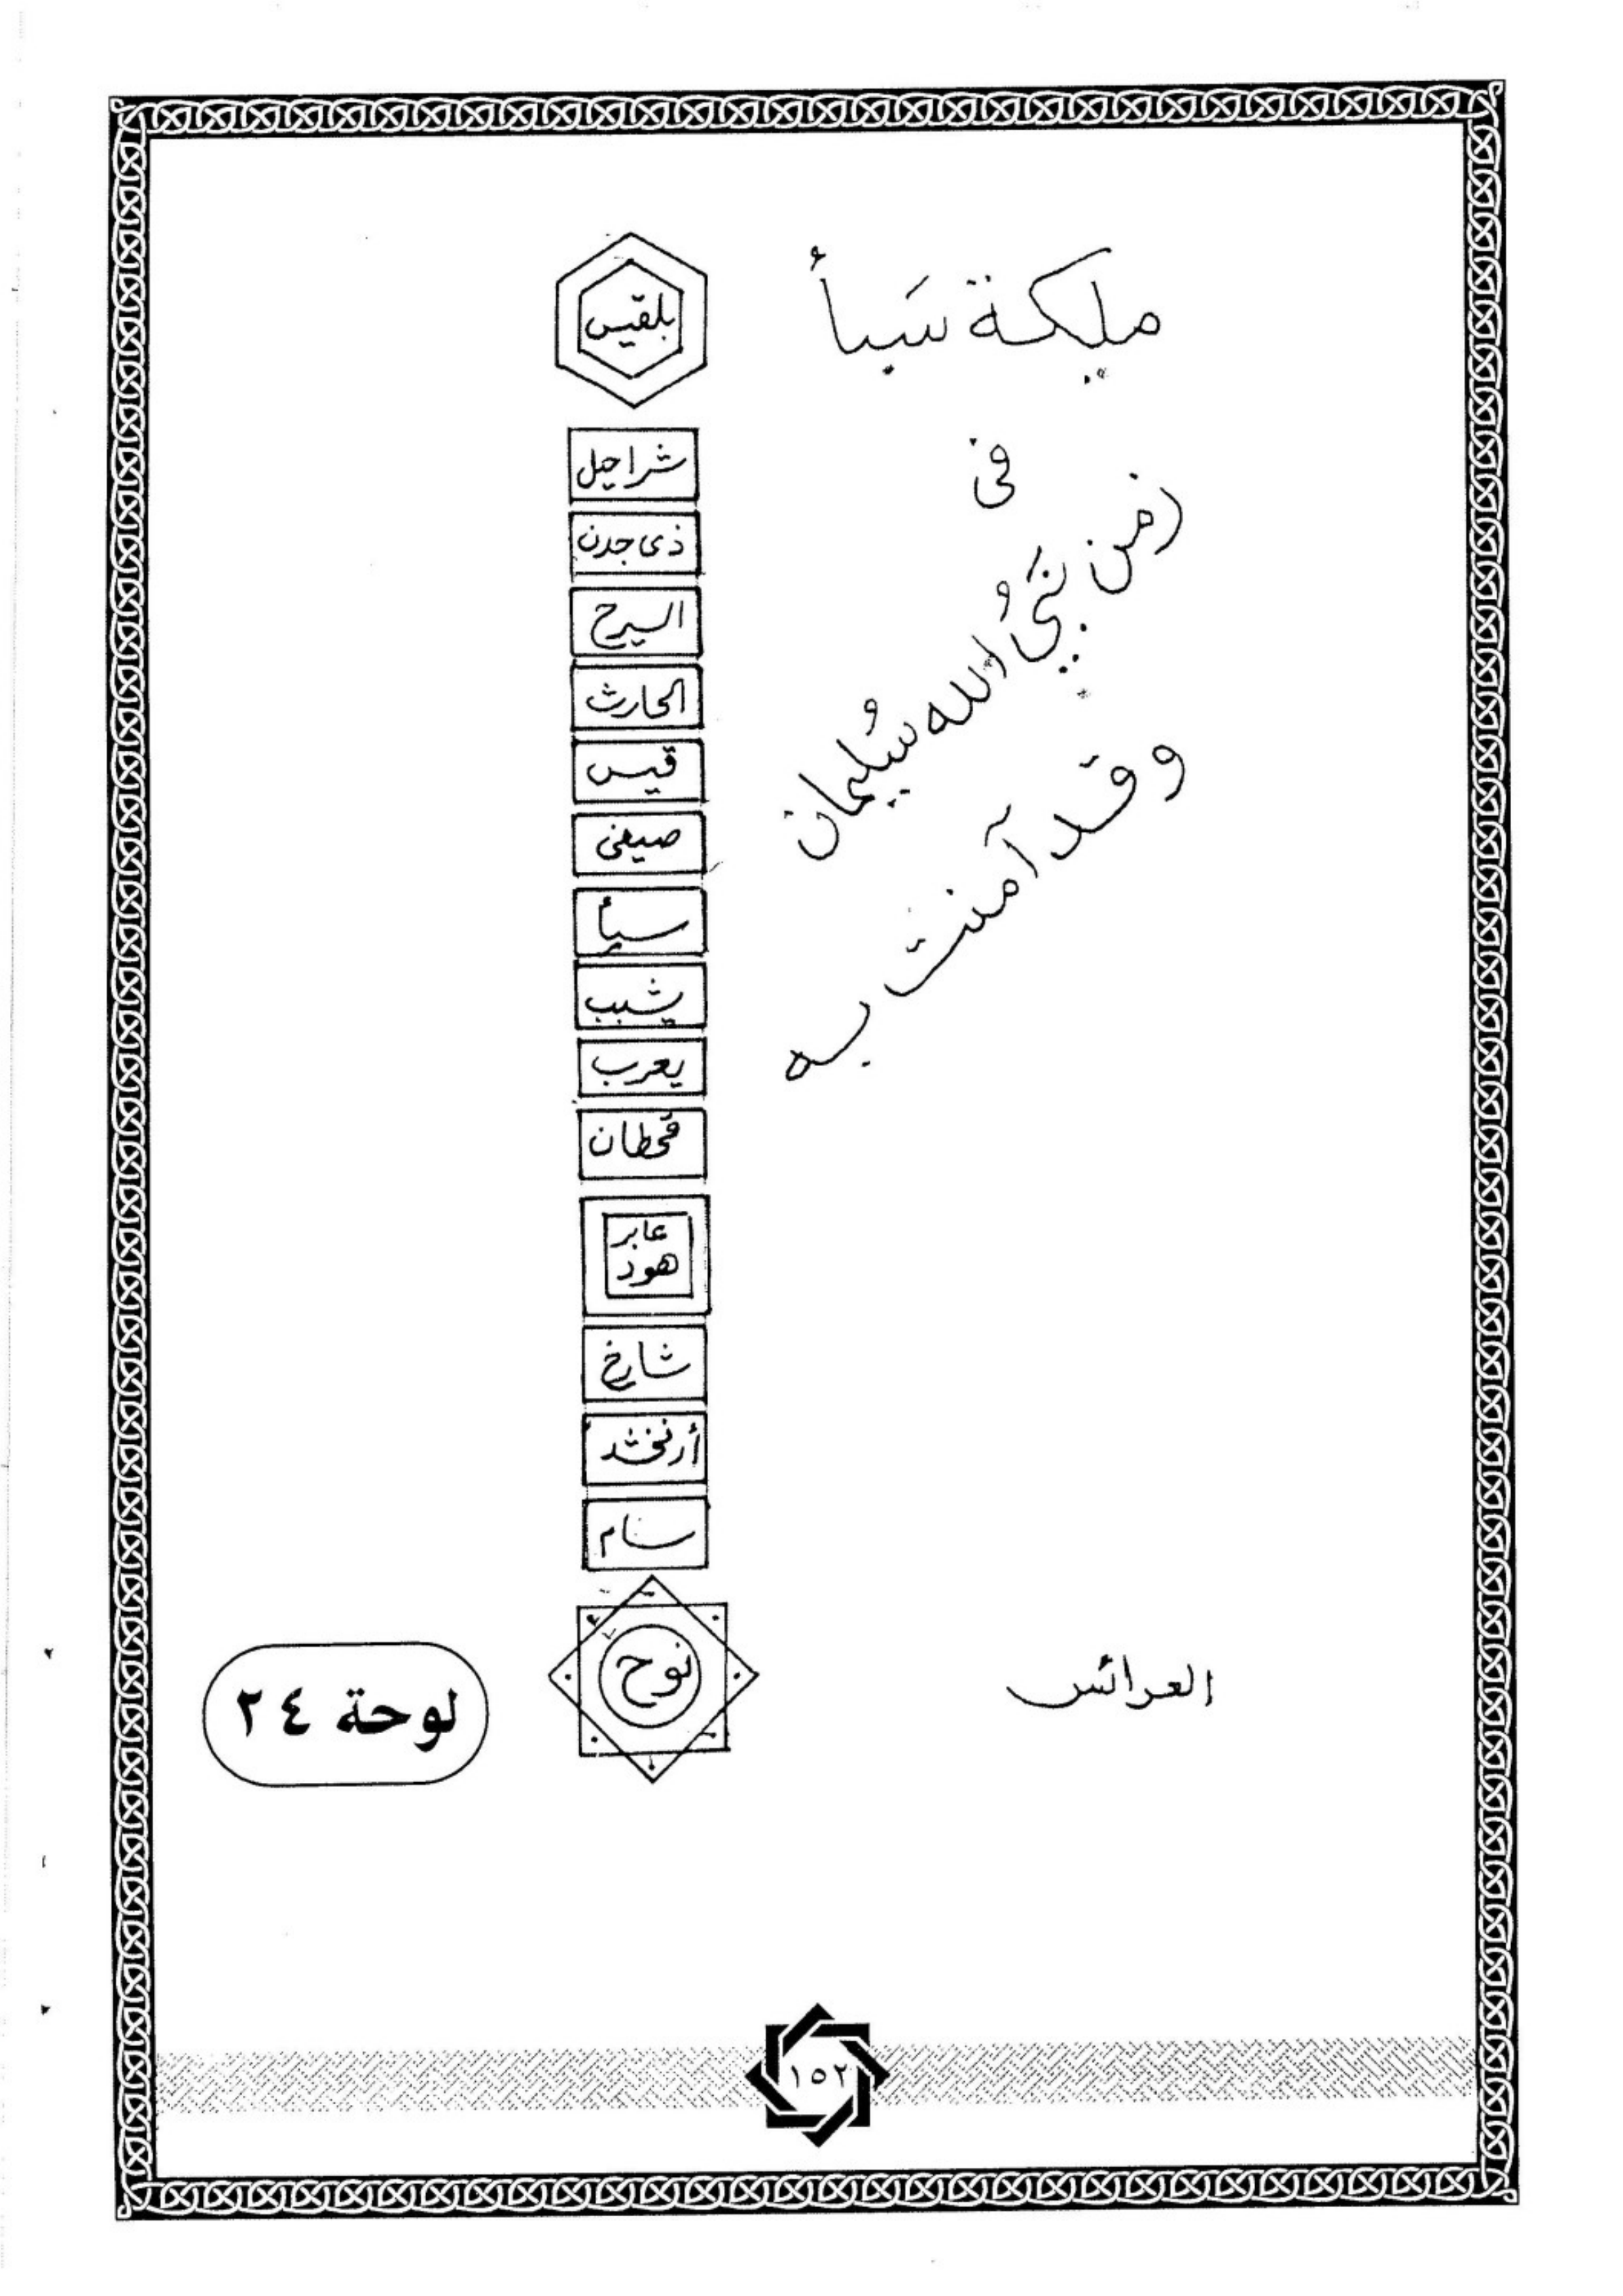 ملكة سَبأ
فى
زمن نَبىُّ الله سُليمان
وقد آمنت به
بلقيس
شراحيل
ذى جدن
السيرح
الحارث
قيس
صيفى
سبأ
يشبب
يعرب
قحطان
عابر
هود
شارخ
أرفخشد
سام
نوح
العرائس
لوحة ٢٤
١٥٢